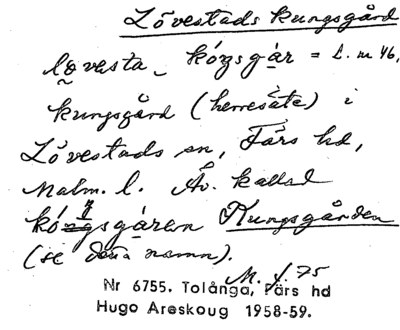 Lövestads kungsgård
lo̰vesta_ kóŋsgạr = L. m 46,
kungsgård (herresäte) i
Lövestads sn, Färs hd,
Malm. l. Äv. kallad
kóŋsgạren Kungsgården
(se detta namn).
M. J. 75
Nr 6755. Tolånga, Färs hd
Hugo Areskoug 1958-59.